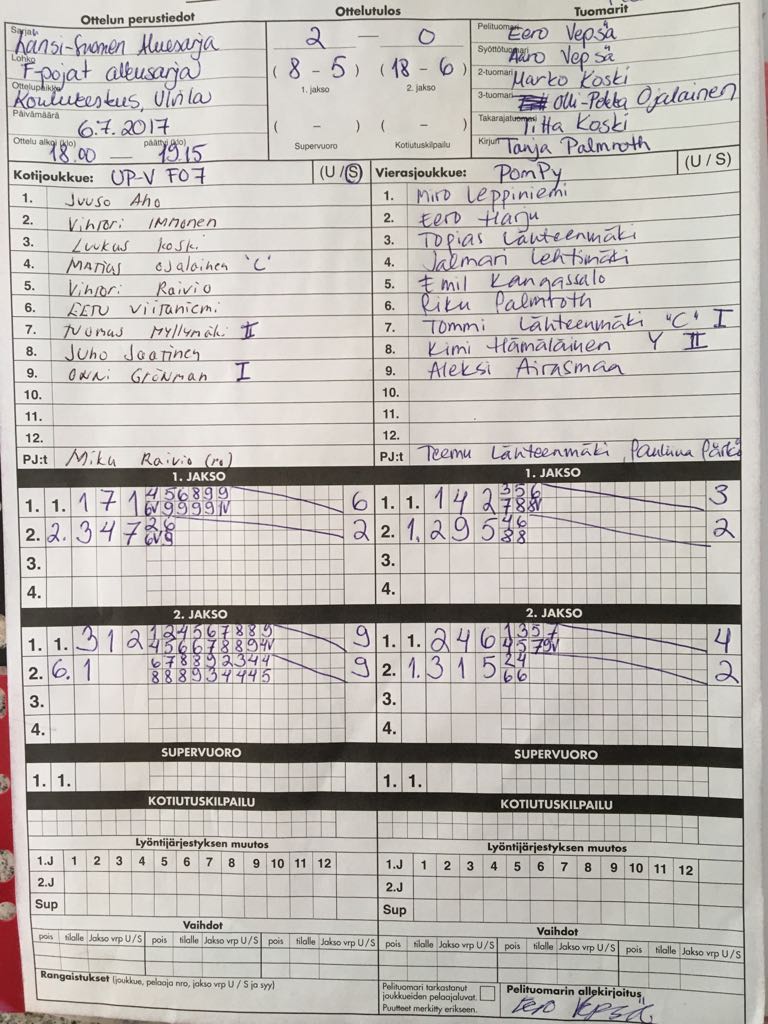 Ottelun perustiedot
Sarja: Länsi-Suomen Aluesarja
Lohko F-pojat alkusarja
Ottelupaikka Koulukeskus, Ulvila
Päivämäärä 6.7.2017
Ottelu alkoi (klo) 18.00 — päättyi (klo) 19.15
Ottelutulos
2 — 0
(8 - 5) (18 - 6)
1. jakso 2. jakso
( - ) ( - )
Supervuoro Kotiutuskilpailu
Tuomarit
Pelituomari Eero Vepsä
Syöttötuomari Aaro Vepsä
2-tuomari Marko Koski
3-tuomari Olli-Pekka Ojalainen
Takarajatuomari Titta Koski
Kirjuri Tanja Palmroth
Kotijoukkue: UP-V F07 (U / S)
1. Juuso Aho
2. Vihtori Immonen
3. Luukus Koski
4. Matias Ojalainen "C"
5. Vihtori Raivio
6. Eetu Viitaniemi
7. Tuomas Myllymäki II
8. Juho Jaatinen
9. Onni Grönman I
10.
11.
12.
PJ:t Miku Raivio (ro)
Vierasjoukkue: PomPy (U / S)
1. Miro Leppiniemi
2. Eero Harju
3. Topias Lähteenmäki
4. Jalmari Lehtimäki
5. Emil Kangassalo
6. Riku Palmroth
7. Tommi Lähteenmäki "C" I
8. Kimi Hämäläinen Y II
9. Aleksi Airasmaa
10.
11.
12.
PJ:t Teemu Lähteenmäki, Pauliina
1. JAKSO
1. 1. 1 7 1 4 5 6 8 9 9 6
6V 9 9 9 9 IV
2. 2. 3 4 7 2 6 2
6V 9
3.
4.
1. JAKSO
1. 1. 1 4 2 3 5 6 3
7 8 8V
2. 1. 2 9 5 4 6 2
8 8
3.
4.
2. JAKSO
1. 1. 3 1 2 1 2 4 5 6 7 8 8 9 9
4 5 6 6 7 8 8 9 4V
2. 6. 1 6 7 8 8 9 2 3 4 4 9
8 8 8 9 3 4 4 4 5
3.
4.
2. JAKSO
1. 1. 2 4 6 1 3 5 7 4
4 5 7 9V
2. 1. 3 1 5 2 4 2
6 6
3.
4.
SUPERVUORO
1. 1.
SUPERVUORO
1. 1.
KOTIUTUSKILPAILU
KOTIUTUSKILPAILU
Lyöntijärjestyksen muutos
1.J 1 2 3 4 5 6 7 8 9 10 11 12
2.J
Sup
Lyöntijärjestyksen muutos
1.J 1 2 3 4 5 6 7 8 9 10 11 12
2.J
Sup
Vaihdot
pois tilalle Jakso vrp U / S pois tilalle Jakso vrp U / S pois tilalle Jakso vrp U / S
Vaihdot
pois tilalle Jakso vrp U / S pois tilalle Jakso vrp U / S pois tilalle Jakso vrp U / S
Rangaistukset (joukkue, pelaaja nro, jakso vrp U / S ja syy)
Pelituomari tarkastanut
joukkueiden pelaajaluvat.
Puutteet merkitty erikseen.
Pelituomarin allekirjoitus
Eero Vepsä